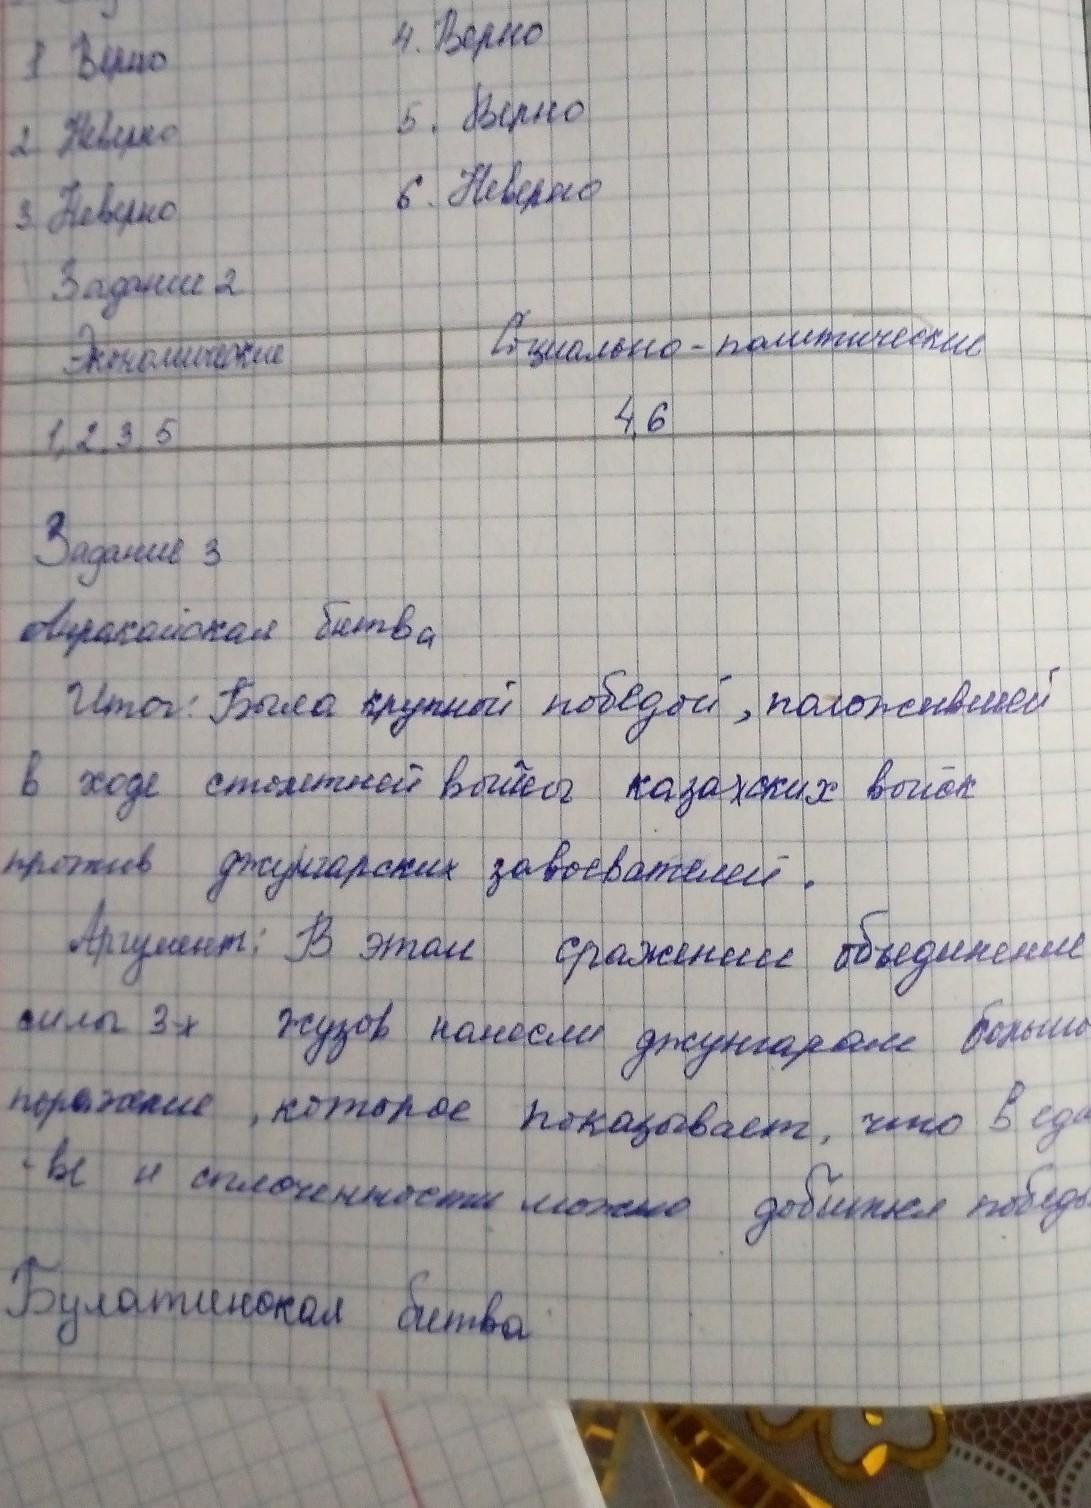 1 Верно 4. Верно
2 Неверно 5. Верно
3 Неверно 6. Неверно
Задание 2
Экономические Социально-политические
1, 2, 3, 5 4, 6
Задание 3
битва
Итог: Была крупной победой, положившей
в ходе столетней войны казахских войск
против джунгарских завоевателей.
Аргумент: В этом сражении объединение
силы 3-х жузов нанесли джунгарам больш
поражение, которое показывает, что в еди
-ве и сплоченности можно добиться победы
Булатинская битва